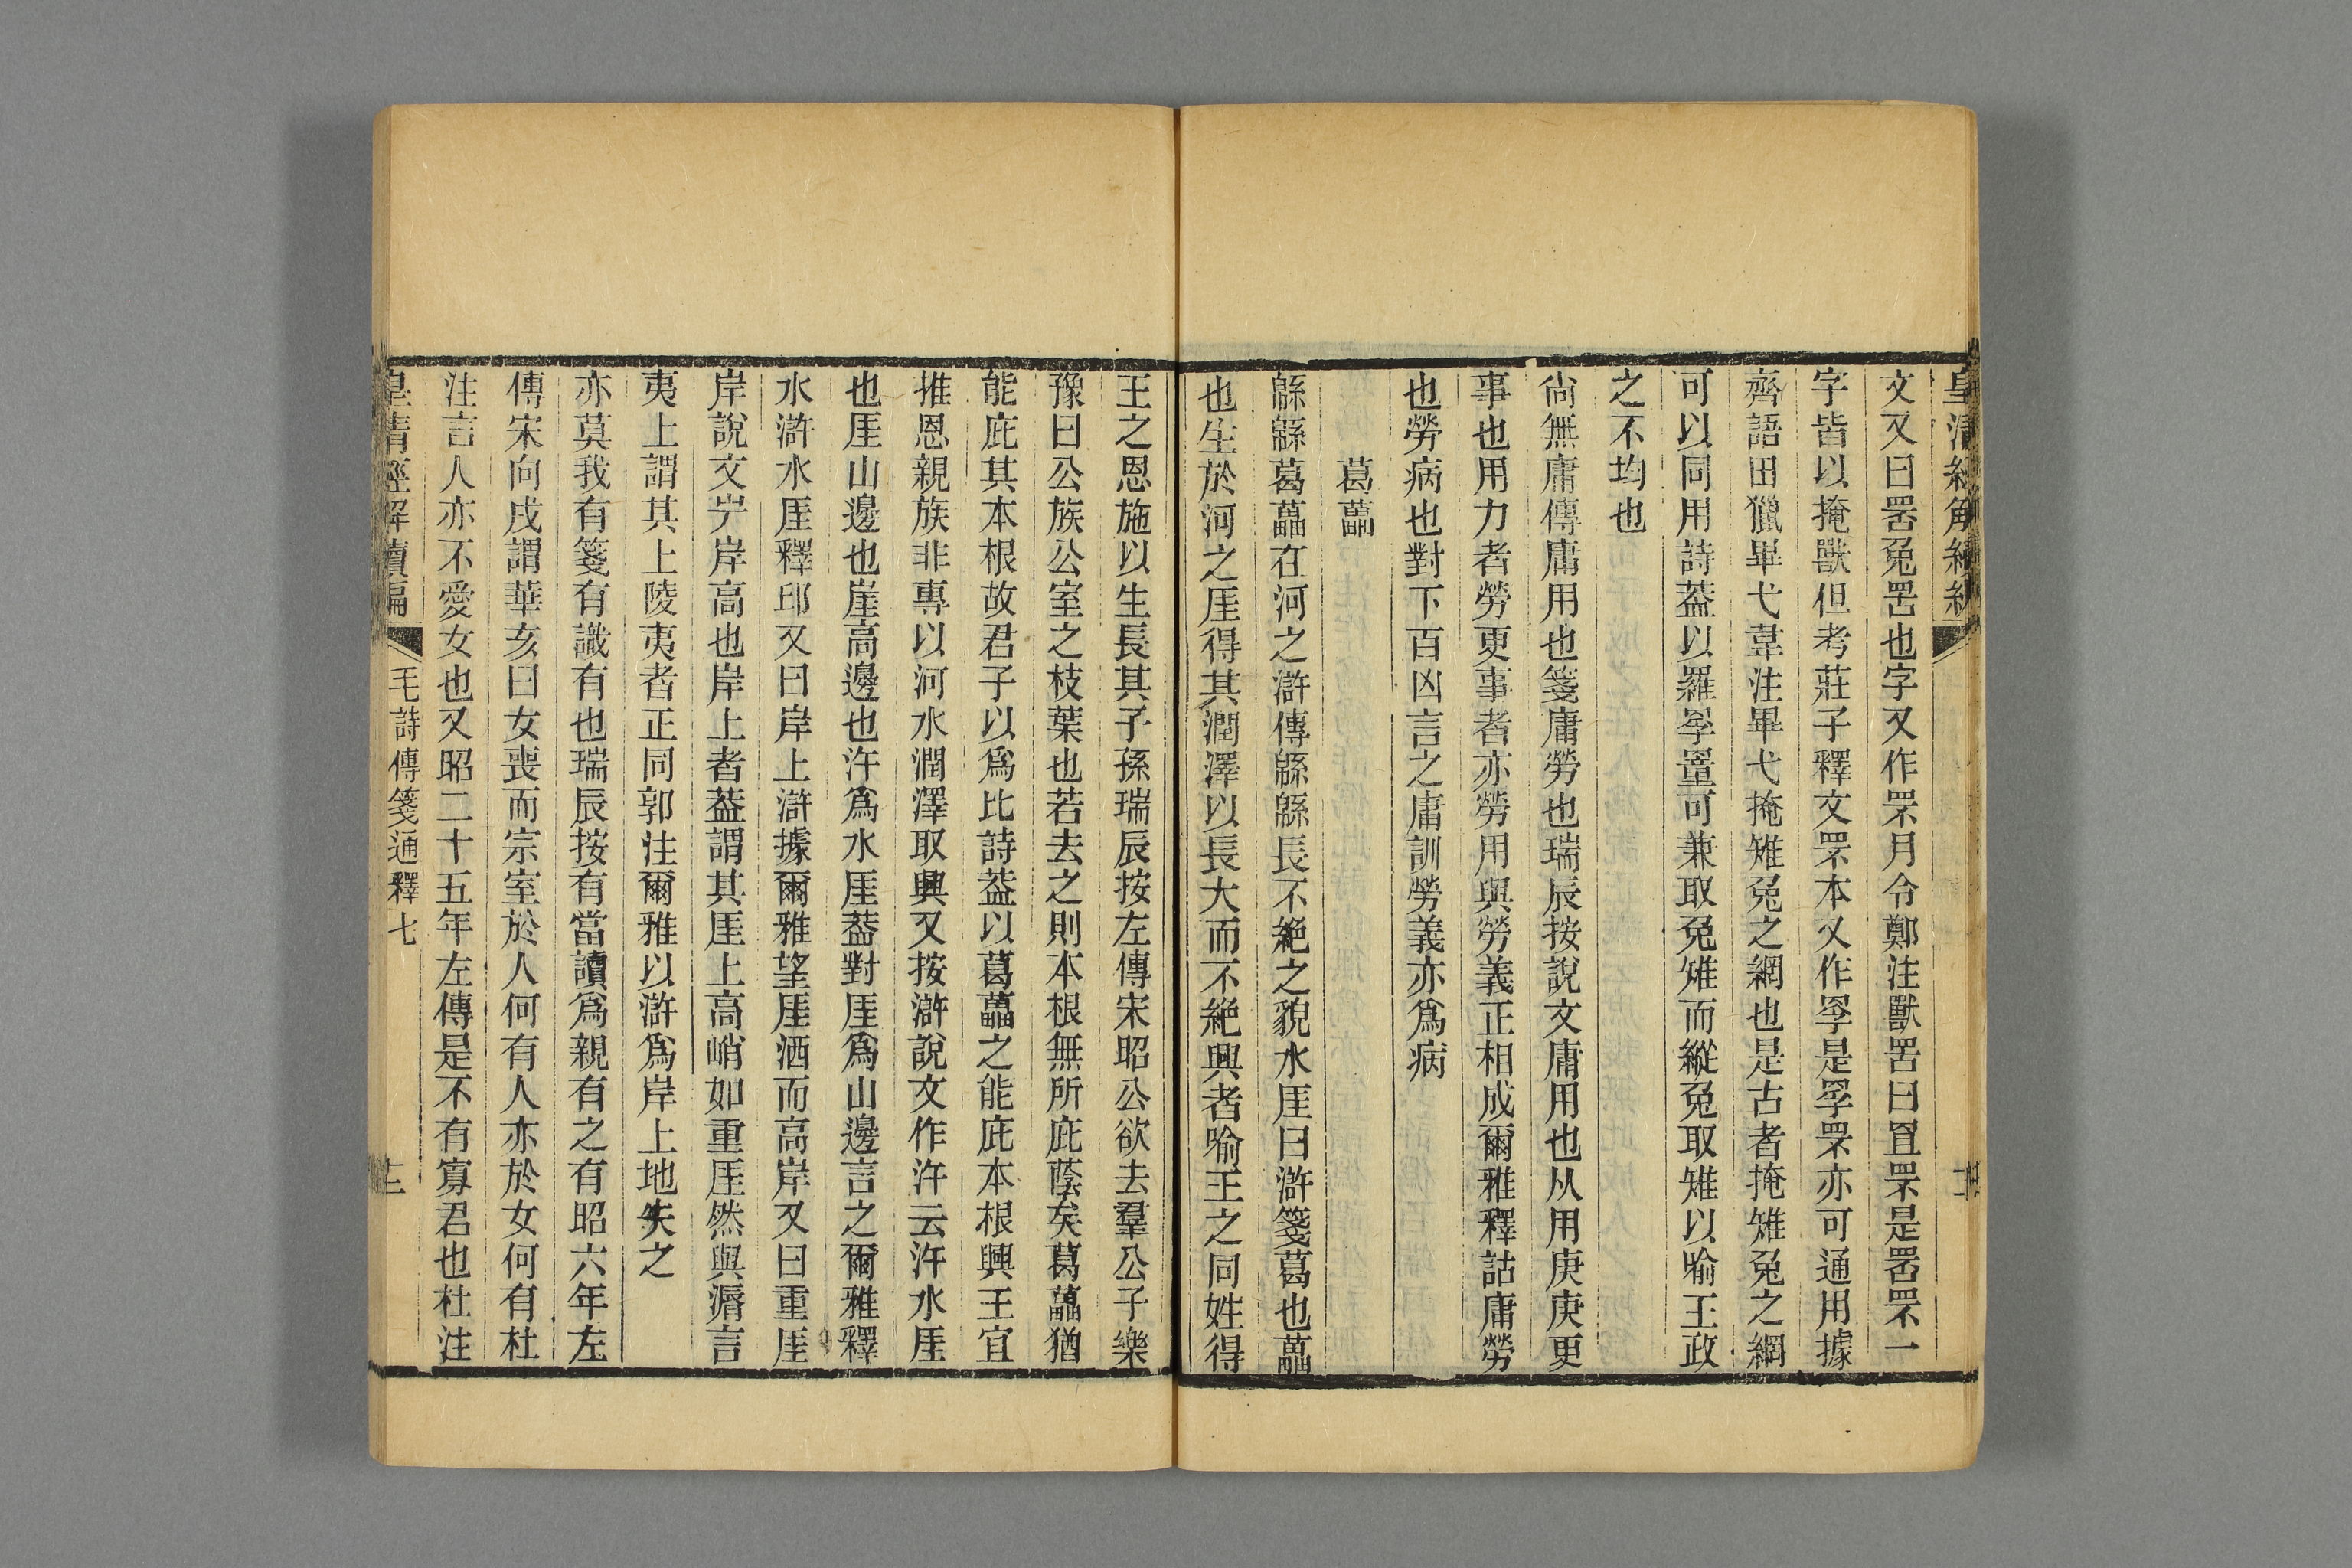 文又曰罟兔罟也字又作罘月令鄭注獸罟曰罝罘是罟罘一
字皆以掩獸但考莊子釋文罘本又作罦是罦罘亦可通用據
齊語田獵畢弋韋注畢弋掩雉兔之網也是古者掩雉兔之網
可以同用詩葢以羅罦罿可兼取兔雉而縱兔取雉以喻王政
之不均也
尙無庸傳庸用也箋庸勞也瑞辰按說文庸用也从用庚庚更
事也用力者勞更事者亦勞用與勞義正相成爾雅釋詁庸勞
也勞病也對下百凶言之庸訓勞義亦爲病
葛藟
緜緜葛藟在河之滸傳緜緜長不絶之貌水厓曰滸箋葛也藟
也生於河之厓得其潤澤以長大而不絶興者喻王之同姓得
王之恩施以生長其子孫瑞辰按左傳宋昭公欲去羣公子樂
豫曰公族公室之枝葉也若去之則本根無所庇蔭矣葛藟猶
能庇其本根故君子以爲比詩葢以葛藟之能庇本根興王宜
推恩親族非專以河水潤澤取興又按滸說文作汻云汻水厓
也厓山邊也崖高邊也汻爲水厓葢對厓爲山邊言之爾雅釋
水滸水厓釋邱又曰岸上滸據爾雅望厓洒而高岸又曰重厓
岸說文屵岸高也岸上者葢謂其厓上高峭如重厓然與漘言
夷上謂其上陵夷者正同郭注爾雅以滸爲岸上地失之
亦莫我有箋有識有也瑞辰按有當讀爲親有之有昭六年左
傳宋向戌謂華亥曰女喪而宗室於人何有人亦於女何有杜
注言人亦不愛女也又昭二十五年左傳是不有寡君也杜注
皇清經解續編
毛詩傳箋通釋七